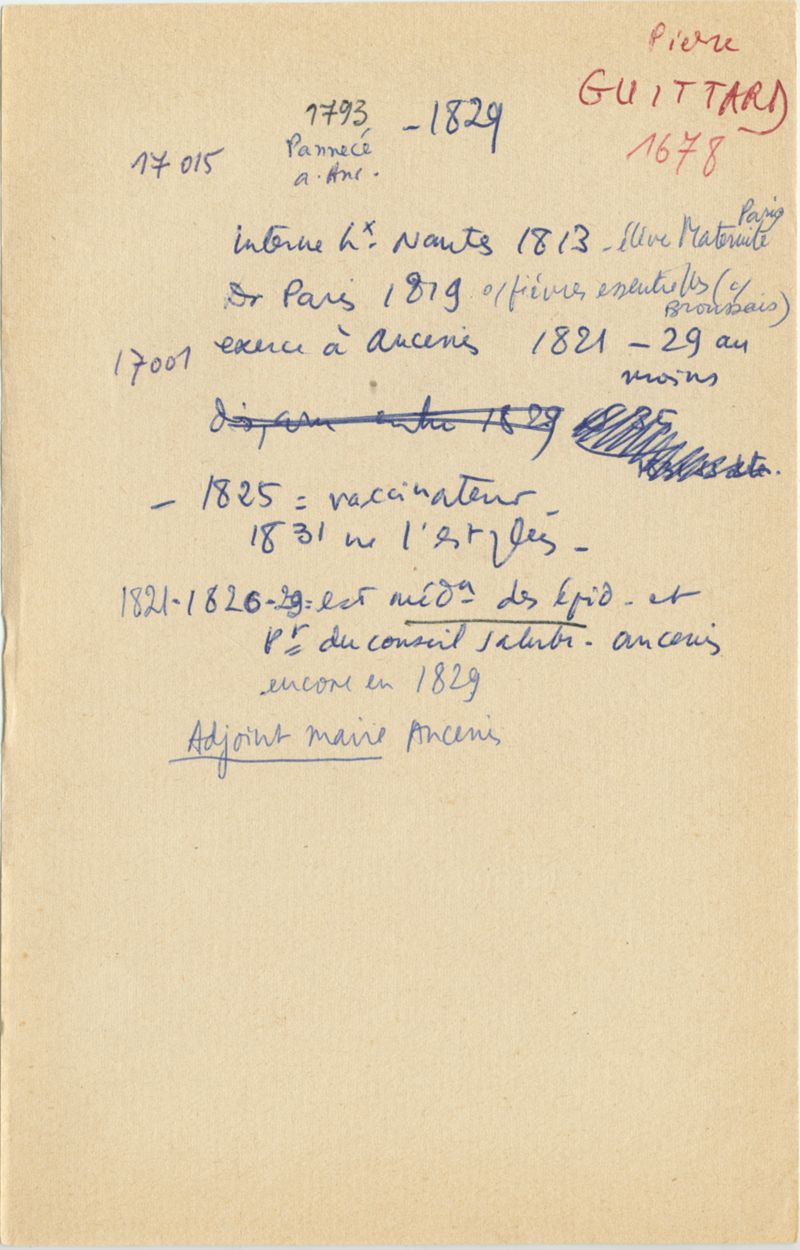 Pierre
GUITTARD
1678
1793 - 1829
Pannecé
a. Anc.
17 015
interne hx. Nantes 1813 - élève Maternité Paris
Dr Paris 1819 o/ fièvres essentielles (c/ Broussais)
17001
exerce à Ancenis 1821 - 29 au
moins
entre 1829
- 1825 = vaccinateur -
1831 ne l'est plus -
1821 - 1826 - 29 = est méd. des épid - et
Pr du conseil salubr - ancenis
encore en 1829
Adjoint maire Ancenis